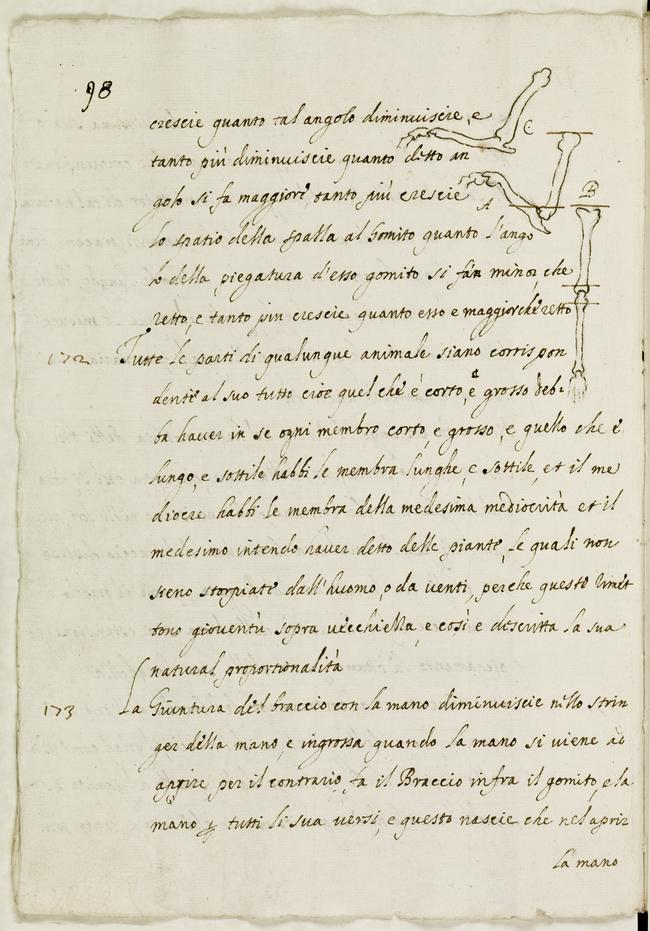 98
crescie quanto tal angolo diminuiscie, e
tanto più diminuiscie quanto detto an
golo si fa maggiore, tanto più crescie
lo spatio della spalla al Gomito quanto l'ango
lo della piegatura d'esso gomito si farà minor, che
retto, e tanto piu crescie quanto esso e maggior che retto
C
A
B
172 Tutte le parti di qualunque animale siano corrispon
dente al suo tutto cioe quel che è corto, e grosso deb-
ba haver in se ogni membro corto, e grosso, e quello che è
lungo, e sottile habbi le membra lunghe, e sottile, et il me
diocre habbi le membra della medesima mediocrità et il
medesimo intendo haver detto delle piante, le quali non
sieno storpiate dall'huomo, o da venti, perche queste rimet
tono gioventù sopra vecchiella, e così e descritta la sua
natural proportionalità
173 La Giuntura del braccio con la mano diminuiscie nello strin
ger della mano, e ingrossa quando la mano si viene ad
aprire per il contrario, fa il Braccio infra il gomito, e la
mano p tutti li sua versi, e questo nascie che nel aprir
la mano